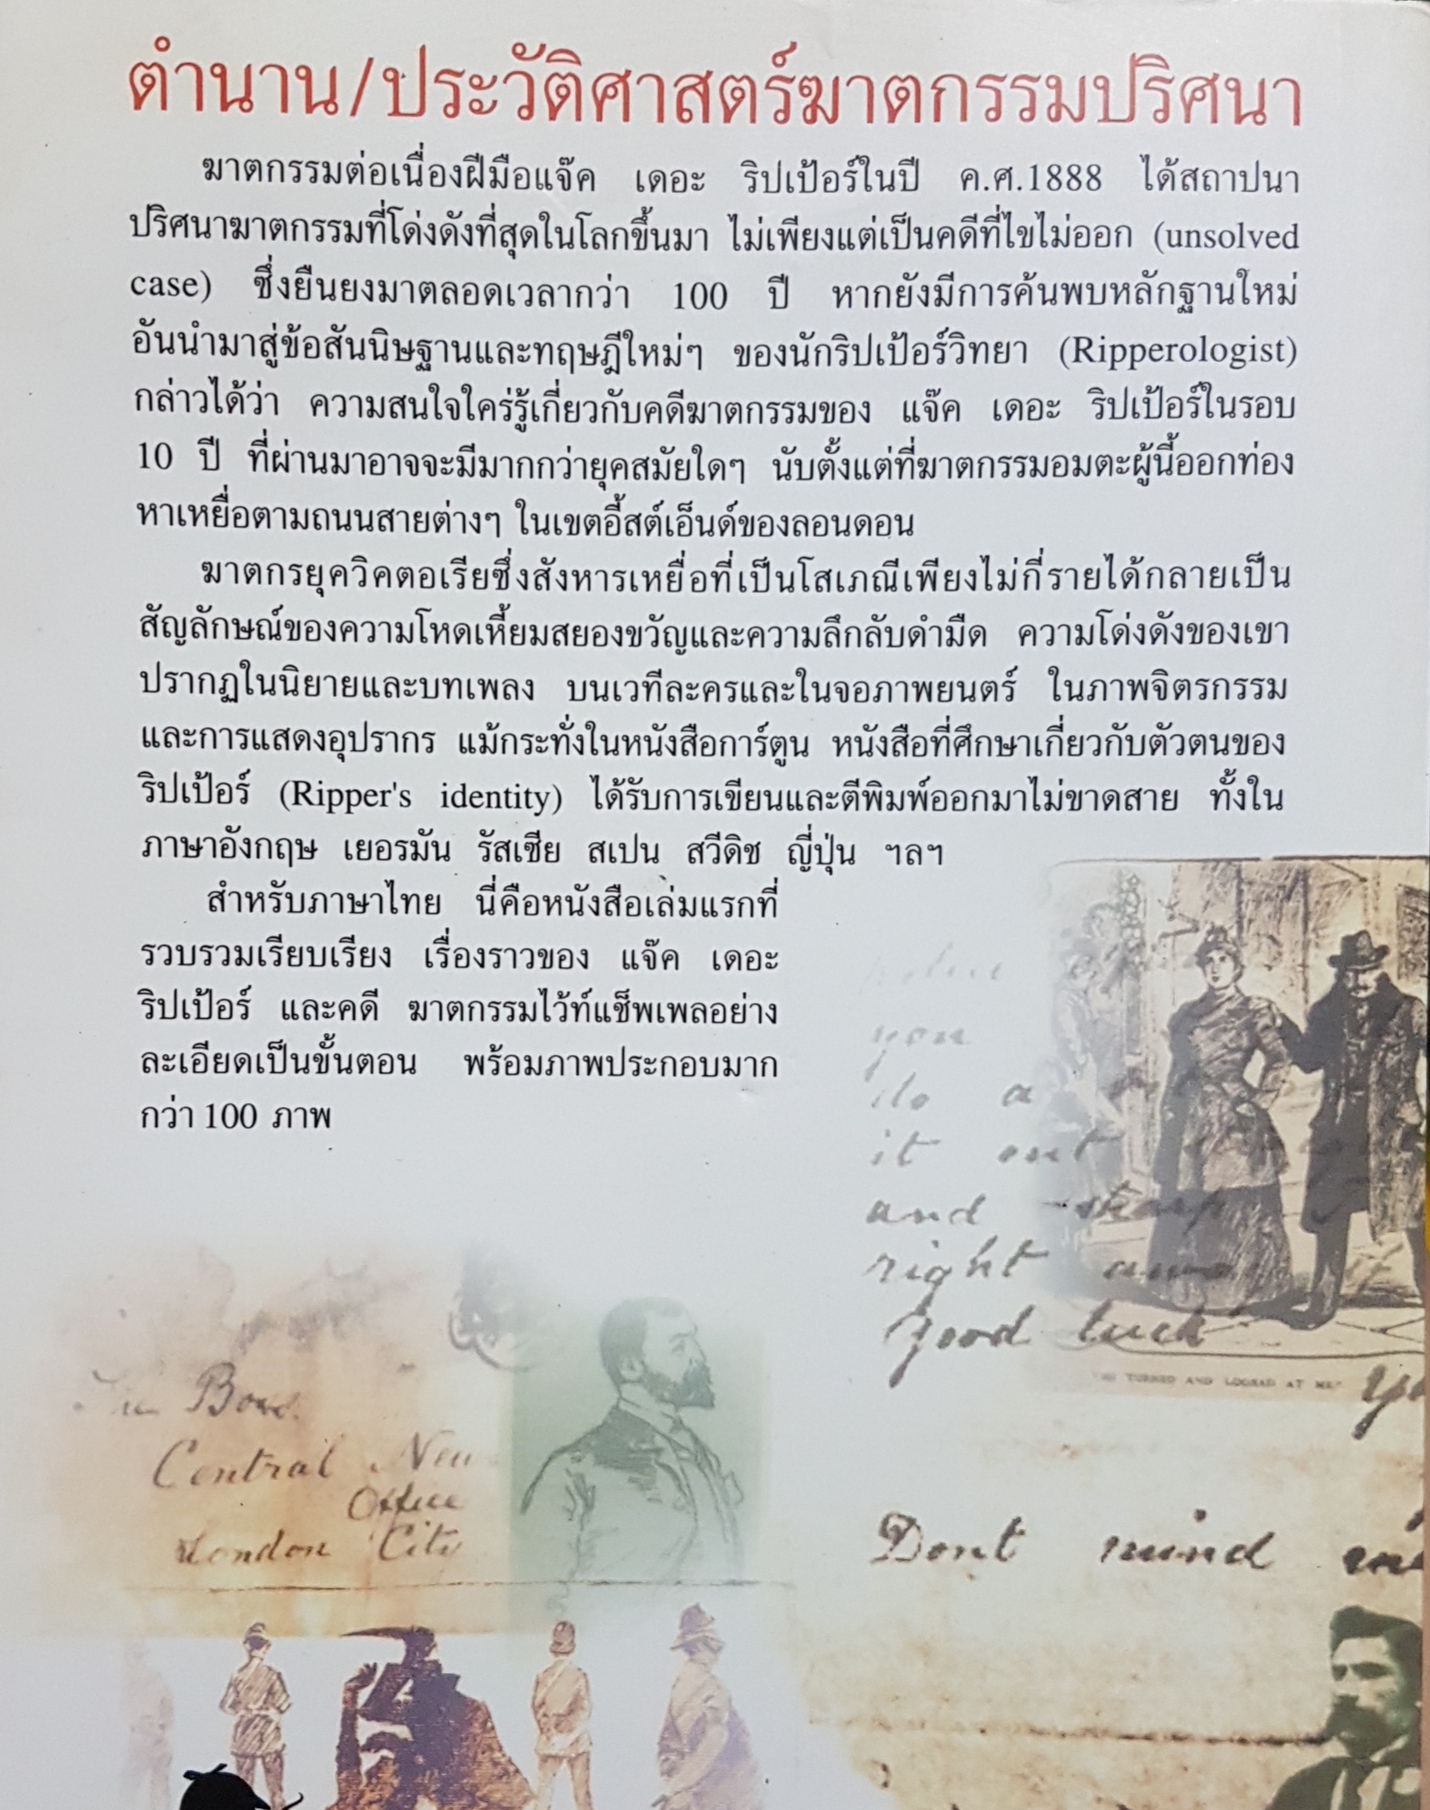 ตำนาน/ประวัติศาสตร์ฆาตกรรมปริศนา
ฆาตกรรมต่อเนื่องฝีมือแจ๊ค เดอะ ริปเป้อร์ในปี ค.ศ.1888 ได้สถาปนา
ปริศนาฆาตกรรมที่โด่งดังที่สุดในโลกขึ้นมา ไม่เพียงแต่เป็นคดีที่ไขไม่ออก (unsolved
case) ซึ่งยืนยงมาตลอดเวลากว่า 100 ปี หากยังมีการค้นพบหลักฐานใหม่
อันนำมาสู่ข้อสันนิษฐานและทฤษฎีใหม่ๆ ของนักริปเป้อร์วิทยา (Ripperologist)
กล่าวได้ว่า ความสนใจใคร่รู้เกี่ยวกับคดีฆาตกรรมของ แจ๊ค เดอะ ริปเป้อร์ในรอบ
10 ปี ที่ผ่านมาอาจจะมีมากกว่ายุคสมัยใดๆ นับตั้งแต่ที่ฆาตกรรมอมตะผู้นี้ออกท่อง
หาเหยื่อตามถนนสายต่างๆ ในเขตอี้สต์เอ็นด์ของลอนดอน
ฆาตกรยุควิคตอเรียซึ่งสังหารเหยื่อที่เป็นโสเภณีเพียงไม่กี่รายได้กลายเป็น
สัญลักษณ์ของความโหดเหี้ยมสยองขวัญและความลึกลับดำมืด ความโด่งดังของเขา
ปรากฏในนิยายและบทเพลง บนเวทีละครและในจอภาพยนตร์ ในภาพจิตรกรรม
และการแสดงอุปรากร แม้กระทั่งในหนังสือการ์ตูน หนังสือที่ศึกษาเกี่ยวกับตัวตนของ
ริปเป้อร์ (Ripper's identity) ได้รับการเขียนและตีพิมพ์ออกมาไม่ขาดสาย ทั้งใน
ภาษาอังกฤษ เยอรมัน รัสเซีย สเปน สวีดิช ญี่ปุ่น ฯลฯ
สำหรับภาษาไทย นี่คือหนังสือเล่มแรกที่
รวบรวมเรียบเรียง เรื่องราวของ แจ๊ค เดอะ
ริปเป้อร์ และคดี ฆาตกรรมไว้ท์แช็พเพลอย่าง
ละเอียดเป็นขั้นตอน พร้อมภาพประกอบมาก
กว่า 100 ภาพ
you
do a
it out
and sharp
right away if
good luck
TURNED AND LOOKED AT ME
Boss
Central News
Office
London City
Dont mind